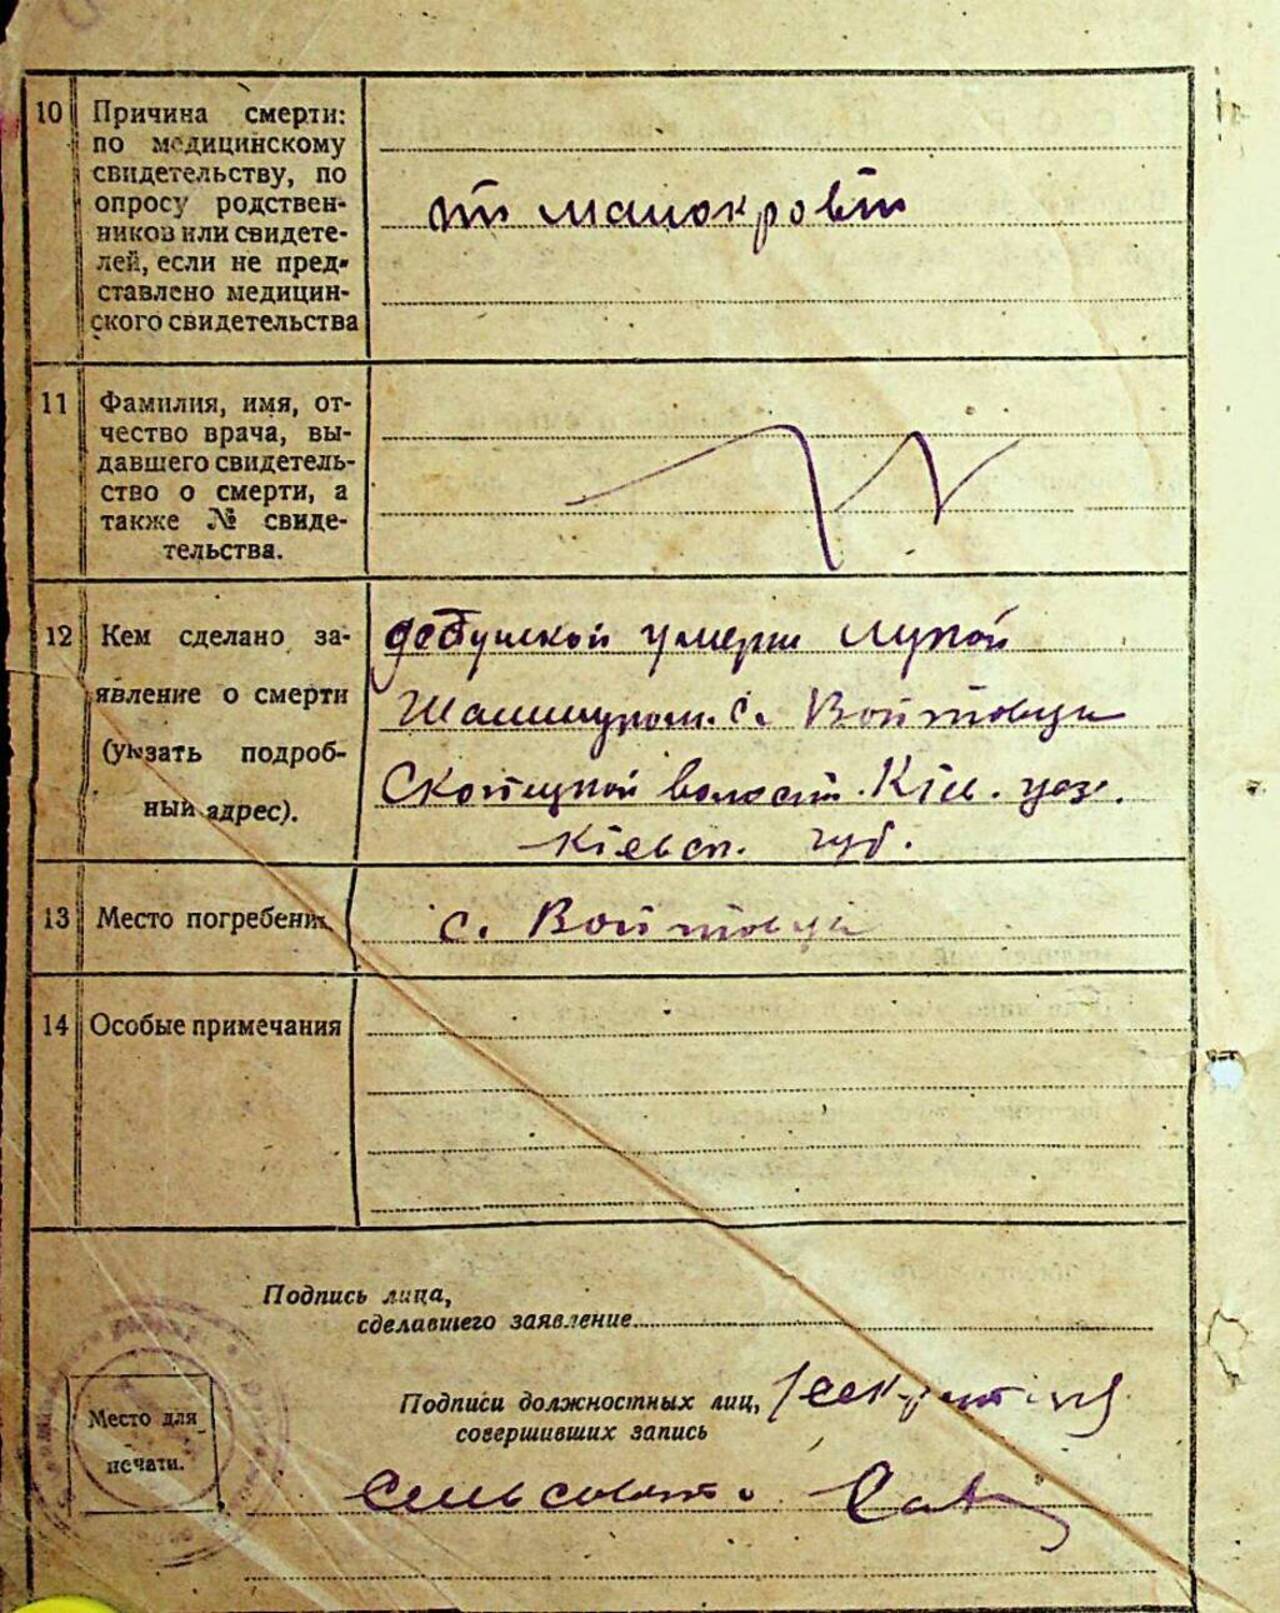 10 Причина смерти:
по медицинскому
свидетельству, по
опросу родствен-
ников или свидете-
лей, если не пред-
ставлено медицин-
ского свидетельства
от малокровия
11 Фамилия, имя, от-
чество врача, вы-
давшего свидетель-
ство о смерти, а
также № свиде-
тельства.
12 Кем сделано за-
явление о смерти
(указать подроб-
ный адрес).
дедушкой умерш
с. Войтовци
волост. Кіев. уез.
Кіевск. губ.
13 Место погребения
с. Войтовци
14 Особые примечания
Подпись лица,
сделавшего заявление
Подписи должностных лиц,
совершивших запись
Место для
печати.
Сельсовета